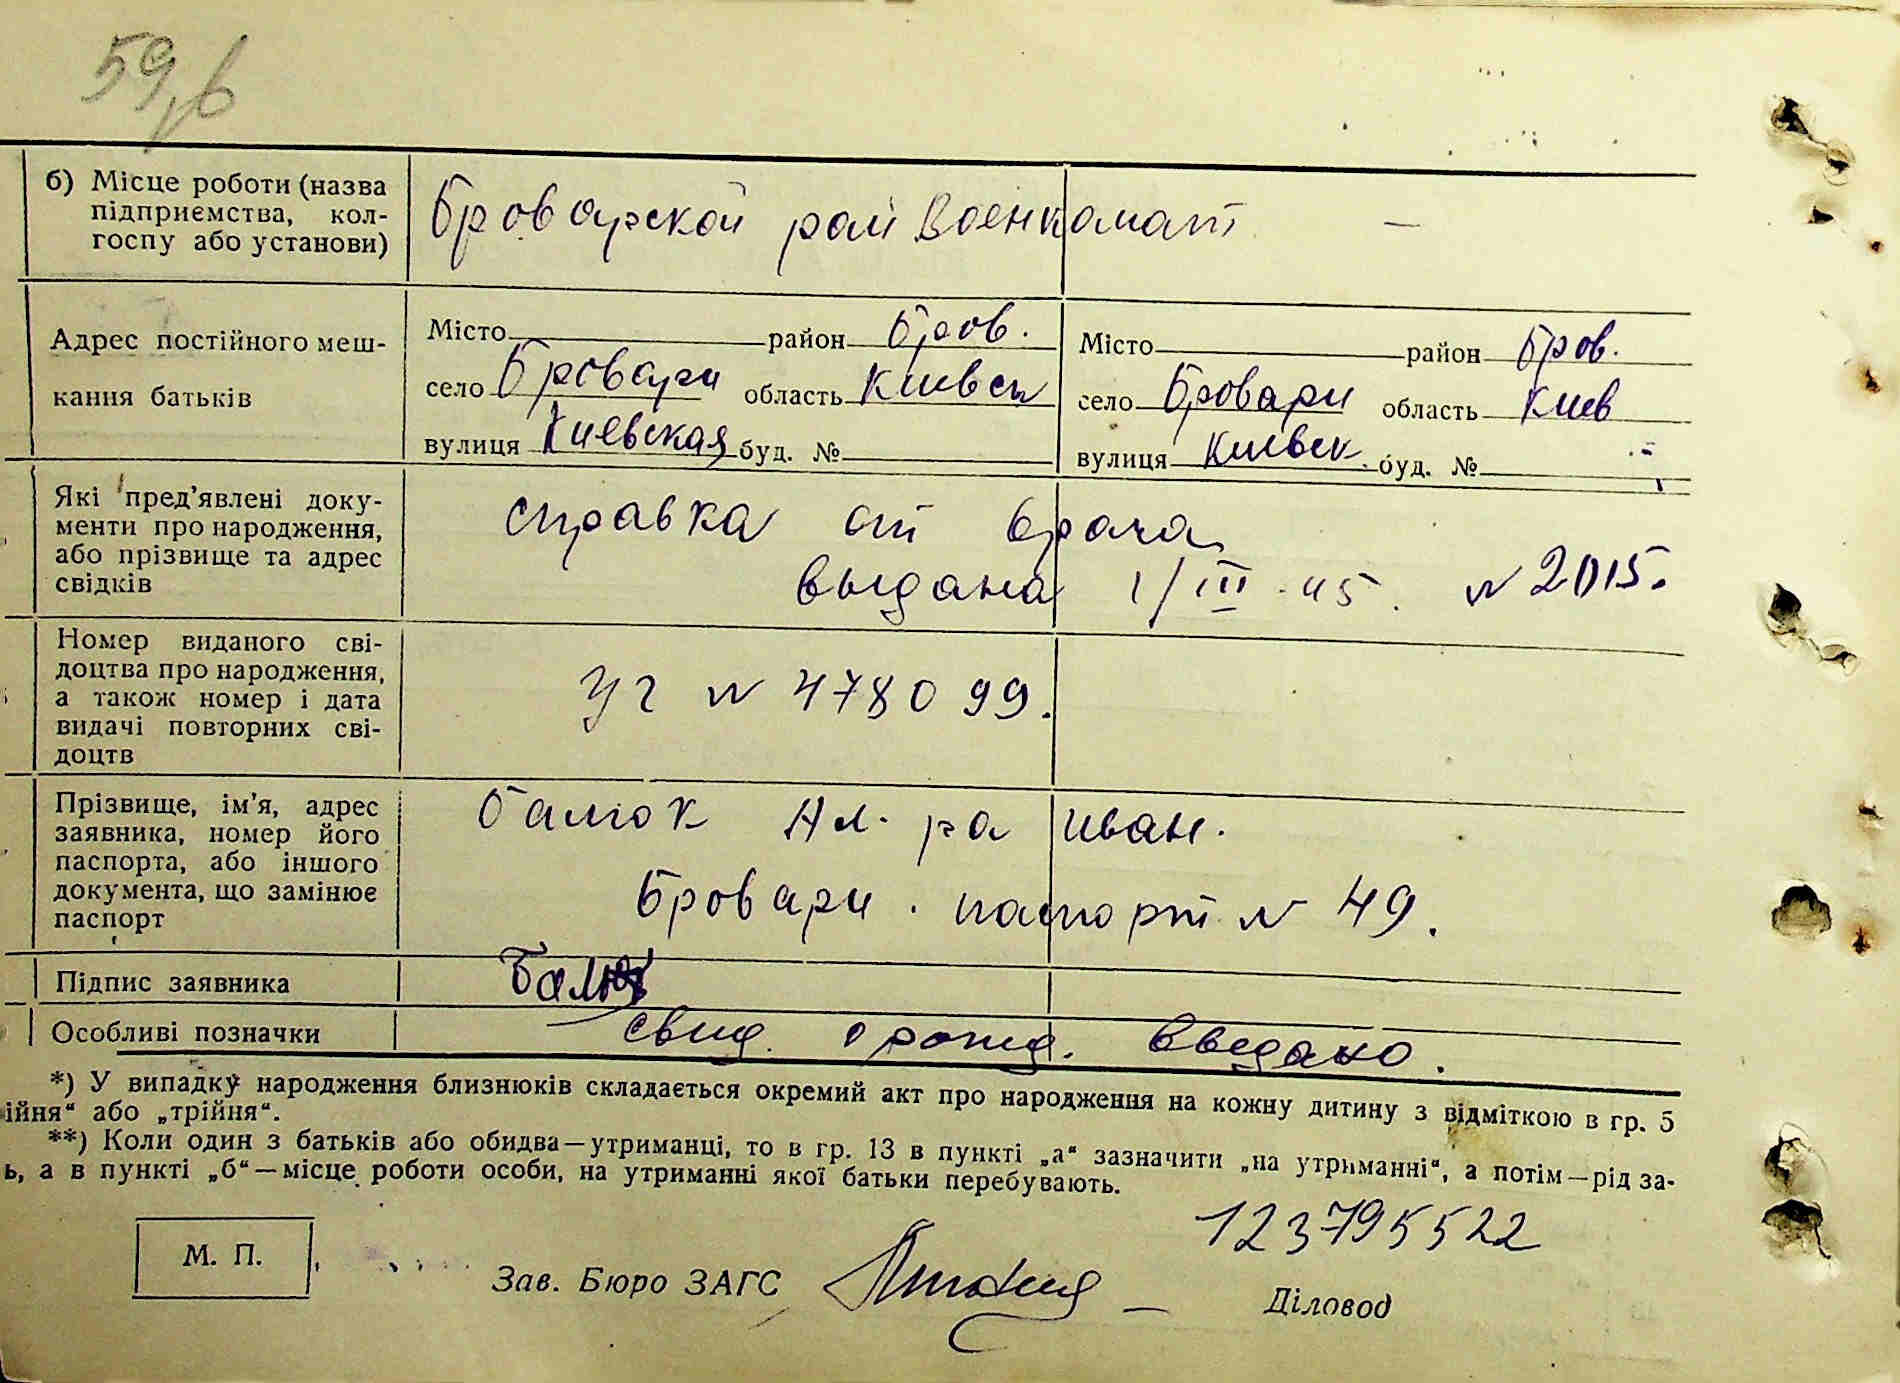 59,в
б) Місце роботи (назва
підприємства, кол-
госпу або установи)
Броварской рай Военкомат —
Адрес постійного меш-
кання батьків
Місто район Бров.
село Бровари область Киевск
вулиця Киевская буд. №
Місто район Бров.
село Бровари область Киев
вулиця Киевск. буд. №
Які пред’явлені доку-
менти про народження,
або прізвище та адрес
свідків
справка от врача
выдана 1/III-45. N 2015.
Номер виданого сві-
доцтва про народження,
а також номер і дата
видачі повторних сві-
доцтв
УГ N 478099.
Прізвище, ім’я, адрес
заявника, номер його
паспорта, або іншого
документа, що замінює
паспорт
Балюк Ал-ра Иван.
Бровари. паспорт N 49.
Підпис заявника
Балюк
Особливі позначки
свид. о рожд. выдано.
*) У випадку народження близнюків складається окремий акт про народження на кожну дитину з відміткою в гр. 5
ійня“ або „трійня“.
**) Коли один з батьків або обидва—утриманці, то в гр. 13 в пункті „а“ зазначити „на утриманні“, а потім—рід за-
ь, а в пункті „б“—місце роботи особи, на утриманні якої батьки перебувають.
123795522
М. П.
Зав. Бюро ЗАГС
Діловод